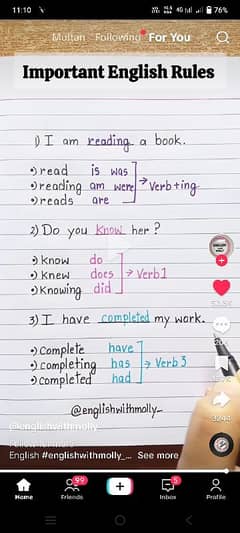 11:10 76%
Multan Following For You
Important English Rules
1) I am reading a book.
read is was
reading am were → Verb+ing
reads are
2) Do you know her?
know do
knew does → Verb1
knowing did
3) I have completed my work.
complete have
completing has → Verb 3
completed had
@englishwithmolly_
@englishwithmolly_
English #englishwithmolly_... See more
3244
99
5
Home Friends Inbox Profile